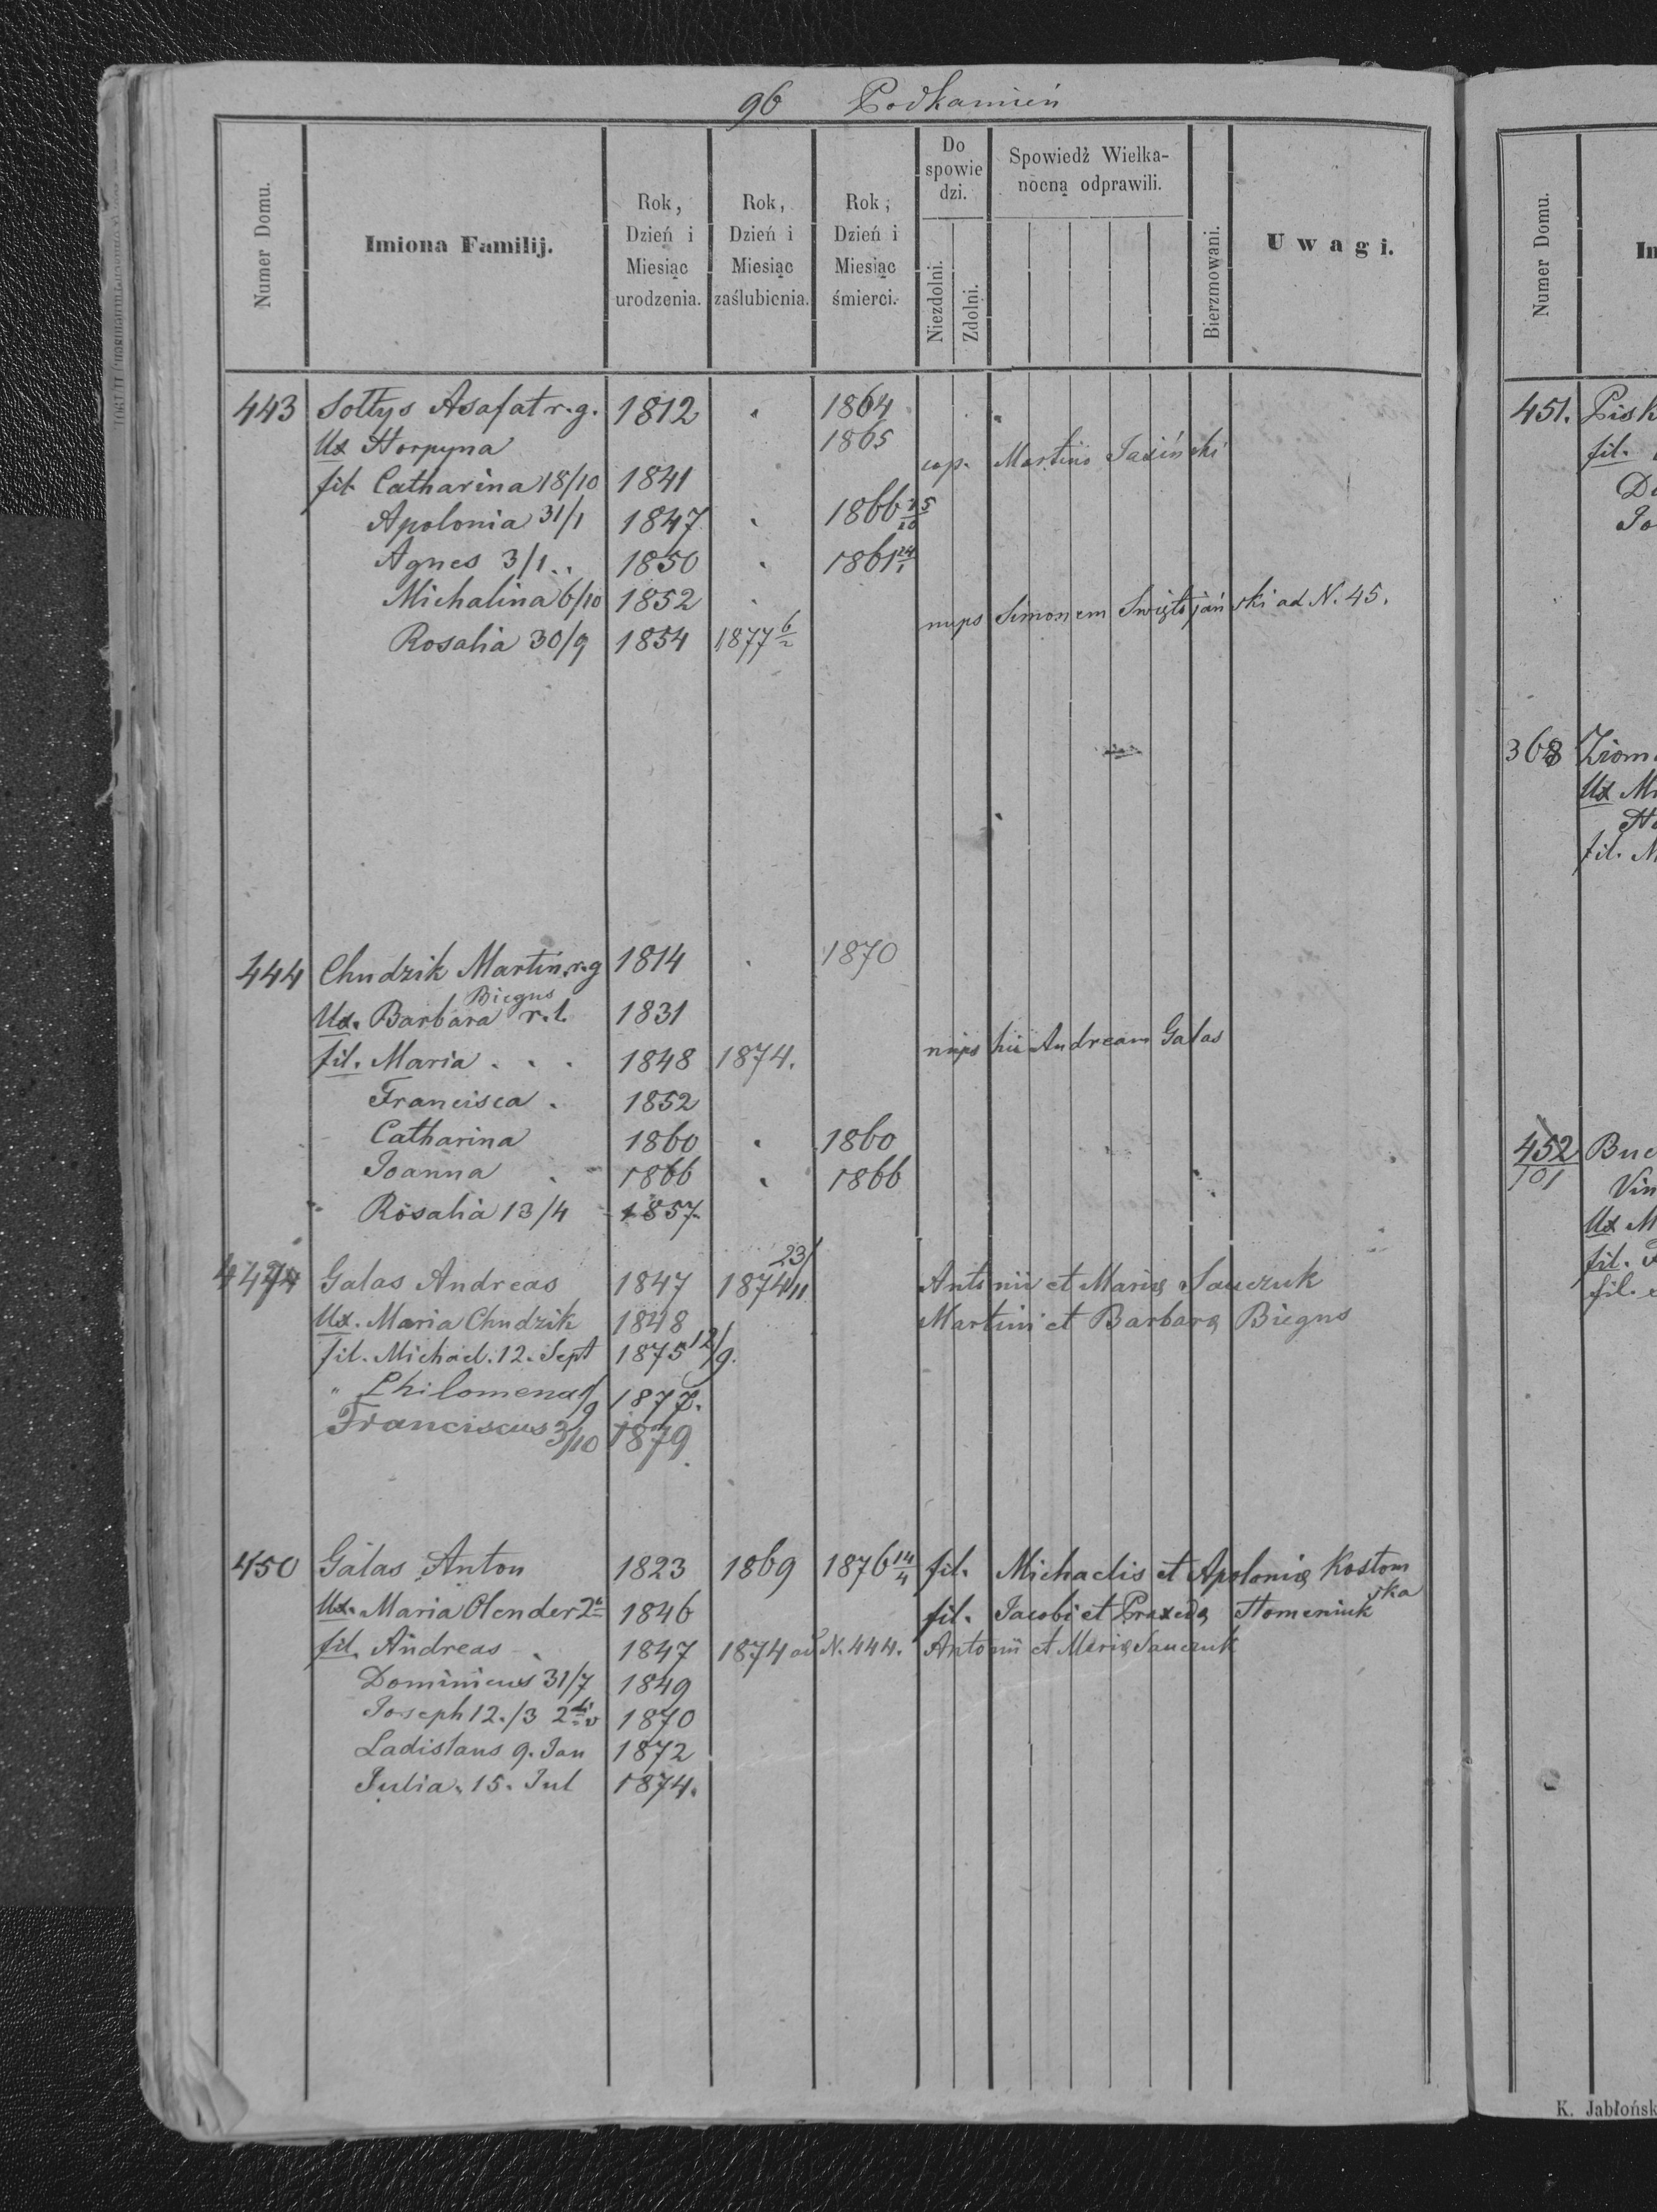 96 Podkamień
Numer Domu.
Imiona Familij.
Rok, Dzień i Miesiąc urodzenia.
Rok, Dzień i Miesiąc zaślubienia.
Rok, Dzień i Miesiąc śmierci.
Do spowie dzi.
Niezdolni.
Zdolni.
Spowiedź Wielka-
nocną odprawili.
Bierzmowani.
Uwagi.
443 Sołtys Asafat r.g. 1812 1864
Ux Horpyna 1865
fil. Catharina 18/10 1841 cop. Martino Jasiński
Apolonia 31/1 1847 1866 15/10
Agnes 3/1 1850 1861 24/1
Michalina 6/10 1852
Rosalia 30/9 1854 1877 6/2 nups Simonem Świętojański ad N. 45.
444 Chudzik Martin r.g 1814 1870
Biegus
Ux. Barbara r.l. 1831
fil. Maria 1848 1874. nups hii Andream Galas
Francisca 1852
Catharina 1860 1860
Joanna 1866 1866
Rosalia 13/4 1857
444 Galas Andreas 1847 1874 23/11 Antonii et Mariæ Sauczuk
Ux. Maria Chudzik 1848 Martini et Barbaræ Biegus
fil. Michael. 12. Sept 1875 12/9.
" Philomena 1/9 1877.
Franciscus 3/10 1879.
450 Galas Anton 1823 1869 1876 14/4 fil. Michaelis et Apoloniæ Kostom
ska
Ux. Maria Olender 1846 fil. Jacobi et Praxedæ Homeniuk
fil. Andreas 1847 1874 ad N. 444. Antonii et Mariæ Sauczuk
Dominicus 31/7 1849
Joseph 12./3 1870
Ladislaus 9. Jan 1872
Julia. 15. Jul 1874.
Numer Domu.
451.
fil.
368
Ux
fil.
452
101
Ux
fil.
fil.
K. Jabłońsk